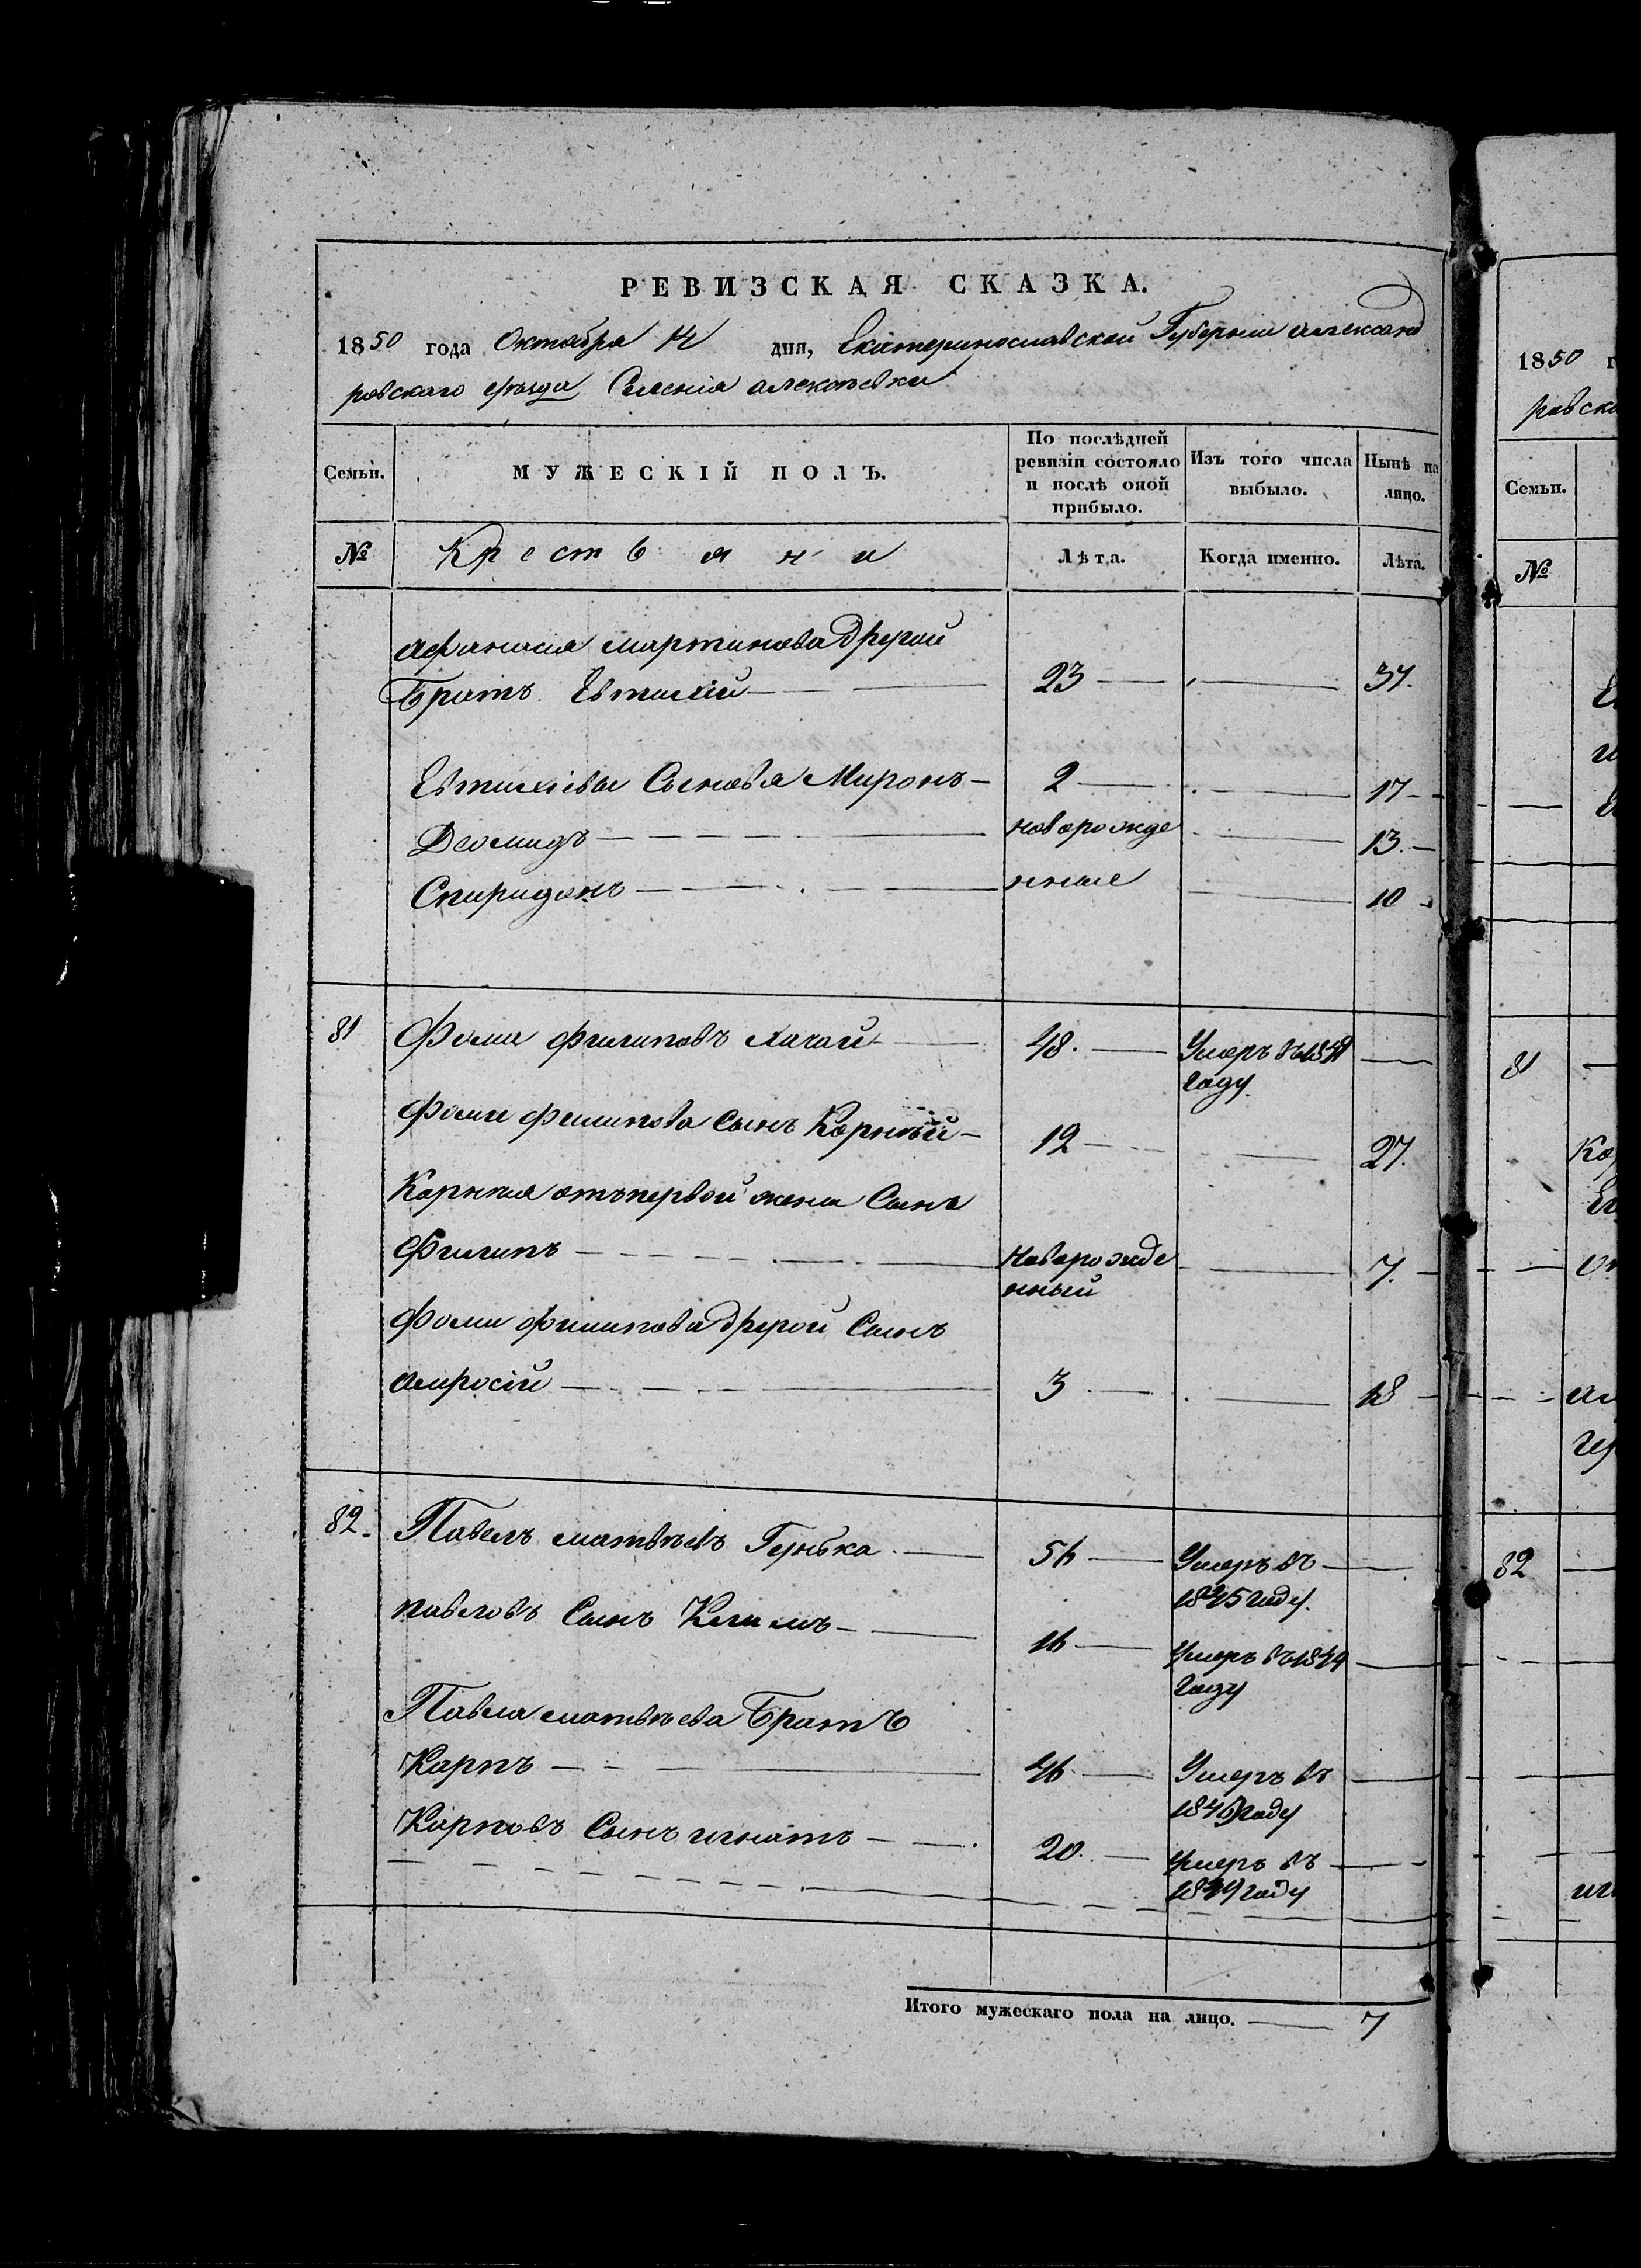 РЕВИЗСКАЯ СКАЗКА.
1850 года Октября дня, Екатеринославской Губерніи александ
ровскаго уѣзда Селенія алексѣевки
Семьи. МУЖЕСКІЙ ПОЛЪ. По послѣдней ревизіи состояло и послѣ оной прибыло. Изъ того числа выбыло. Нынѣ на лицо.
№ Крестьяни Лѣта. Когда именно. Лѣта.
афанасія мартинова другой
Братъ Евтихій 23 37.
Евтихіевы Сыновя Миронъ 2 17
Деомидъ новорожде 13.
Спиридонъ нные 10
81 Фома филиповъ 48. Умеръ въ 1841
году.
фоми филипова Сынъ Корнѣй 12 27.
Корнѣя отъ первой жены Сынъ
Филипъ Новорожде 7.
нный
фоми филипова другой Сынъ
амросій 3 18
82. Павелъ матвѣевъ Гунька 56 Умеръ въ
1845 году.
павловъ Сынъ Климъ 16 умеръ въ 1849
году
Павла матвѣева Братъ
Карпъ 46 Умеръ въ
1845 году
Карповъ Сынъ игнатъ 20. умеръ въ
1849 году
Итого мужескаго пола на лицо. 7
1850 г
ровска
Семьи.
№
81
Ко
82